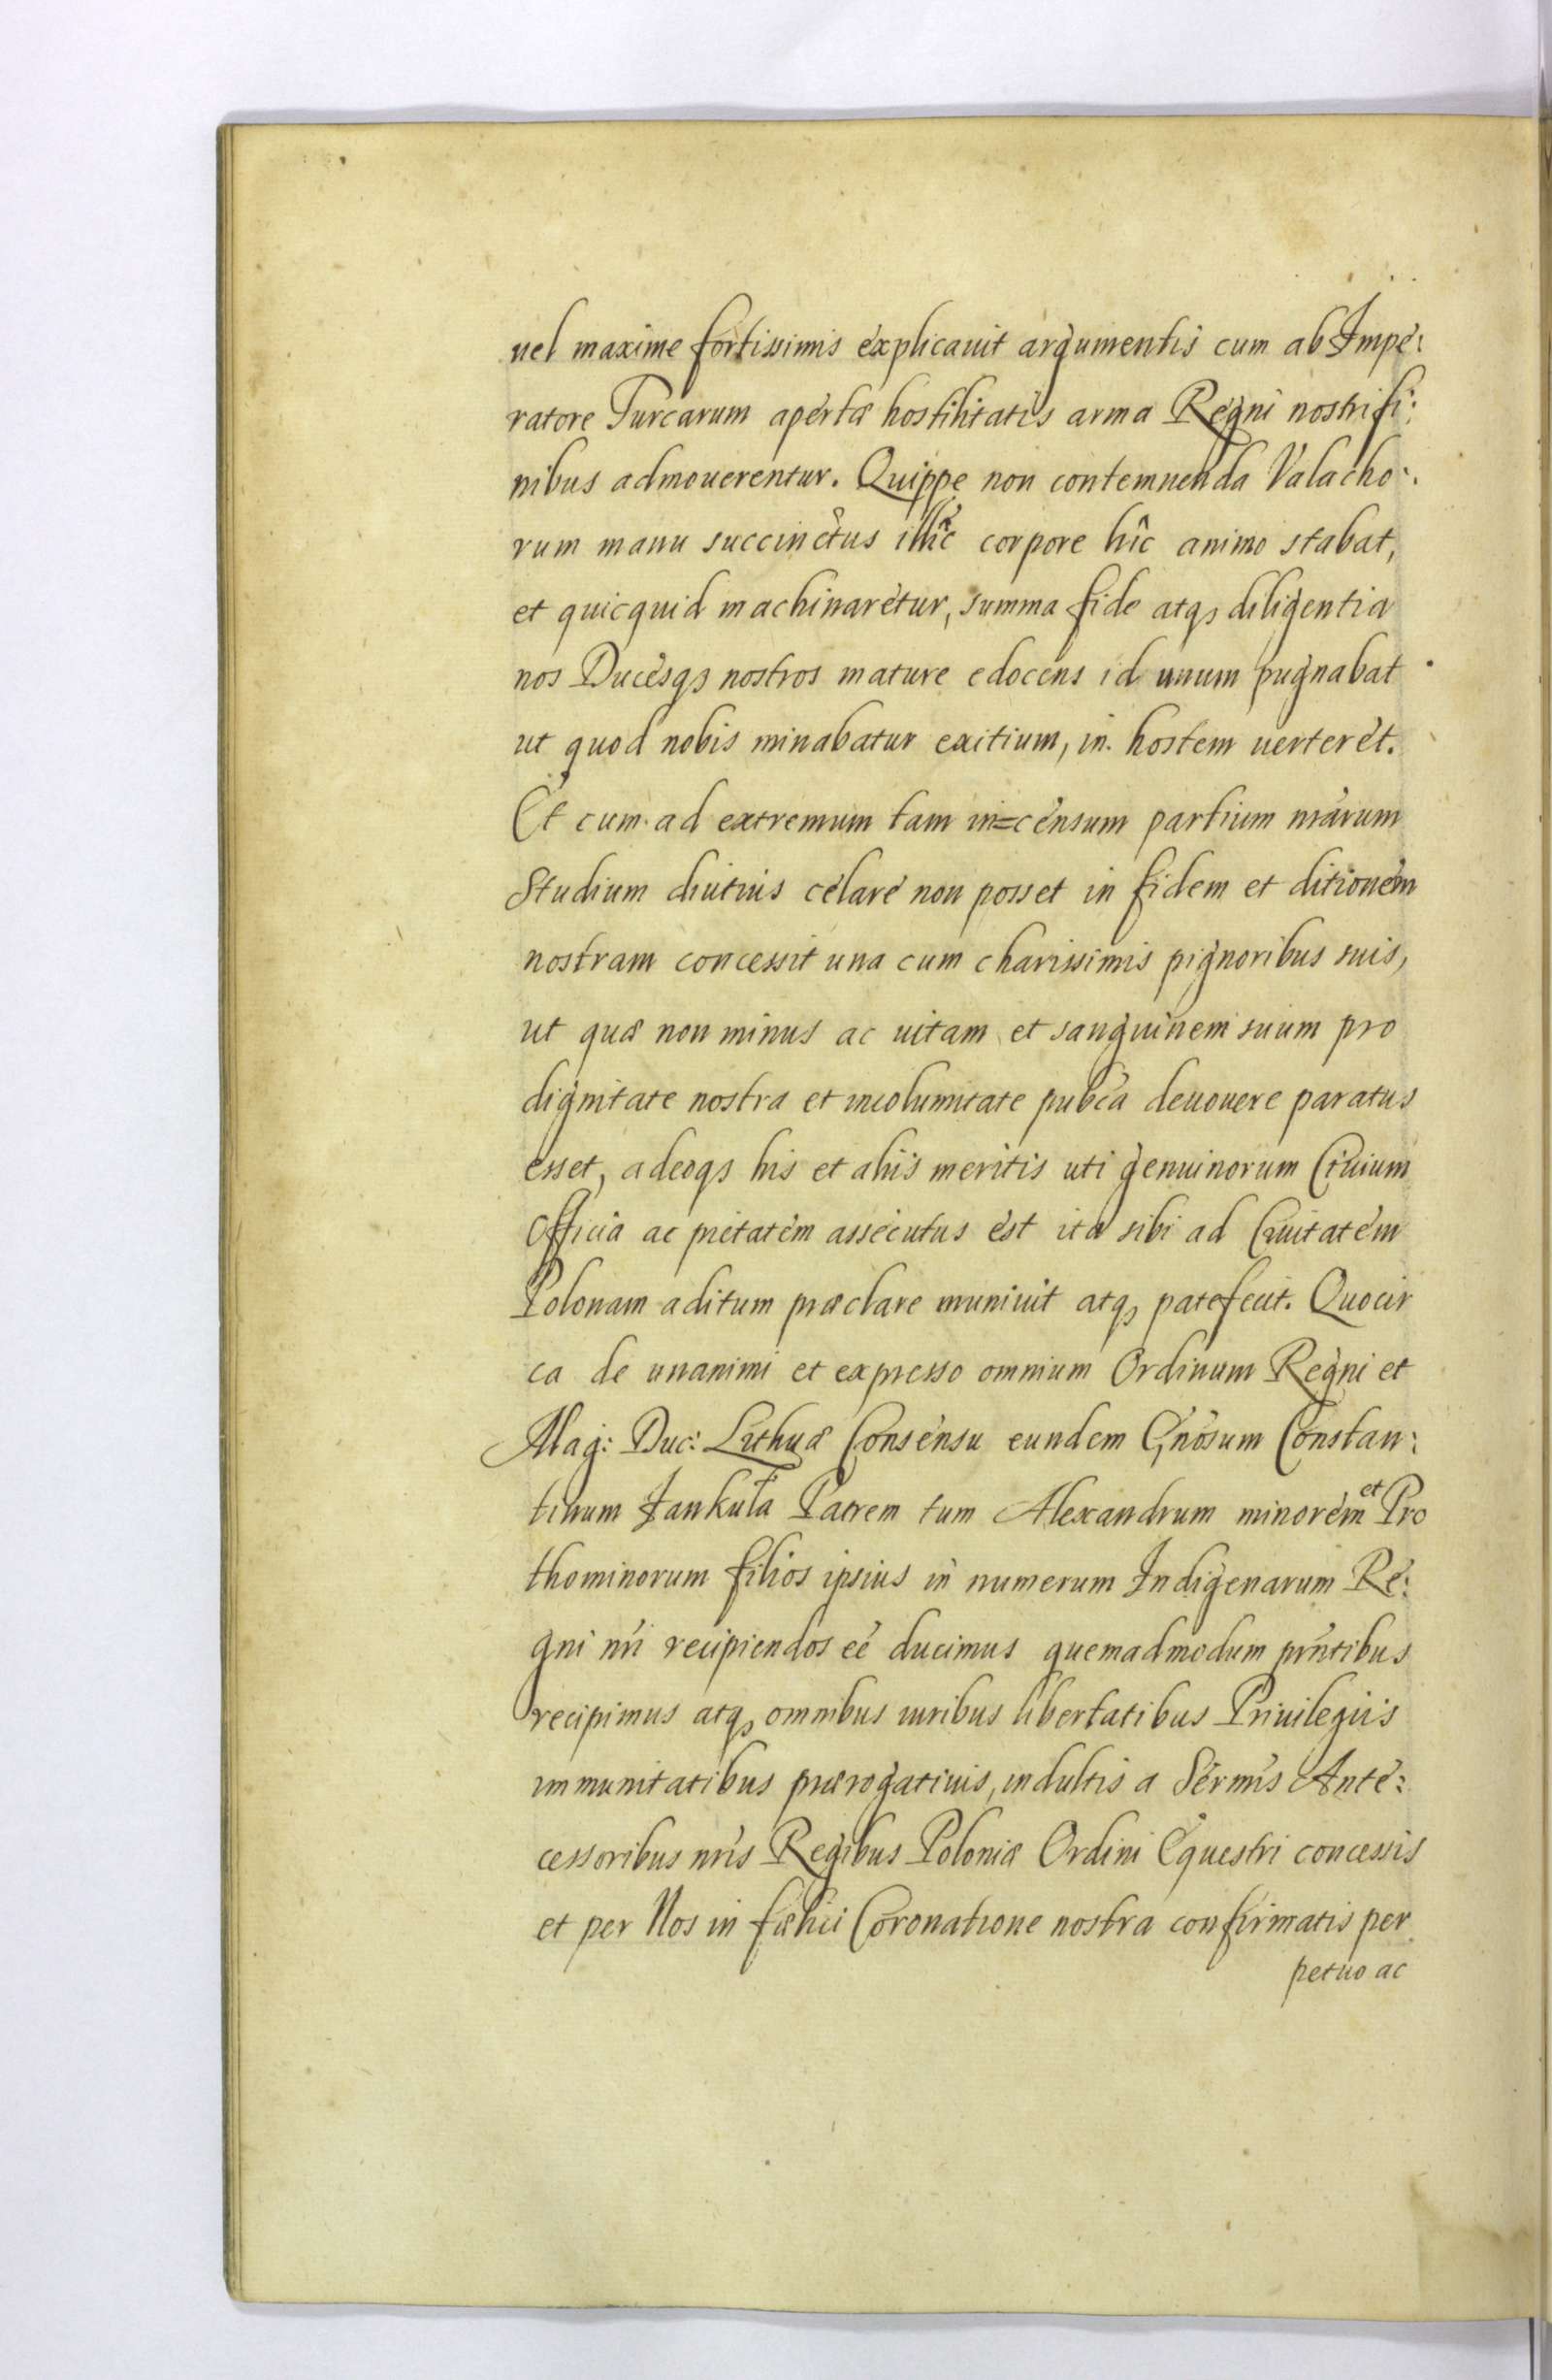 uel maxime fortissimis explicauit argumentis cum ab Impe:
ratore Turcarum apertæ hostilitatis arma Regni nostri fi:
nibus admouerentur. Quippe non contemnenda Valacho:
rum manu succinctus illîc corpore hîc animo stabat,
et quicquid machinaretur, summa fide atqꝫ diligentia
nos Ducesqꝫ nostros mature edocens id unum pugnabat
ut quod nobis minabatur exitium, in hostem uerteret.
Et cum ad extremum tam in=censum partium nrãrum
Studium diutius celare non posset in fidem et ditionem
nostram concessit una cum charissimis pignoribus suis,
ut quæ non minus ac uitam et sanguinem suum pro
dignitate nostra et incolumitate pubca deuouere paratus
esset, adeoqꝫ his et alijs meritis uti genuinorum Ciuium
Officia ac pietatem assecutus est ita sibi ad Ciuitatem
Polonam aditum præclare muniuit atqꝫ patefecit. Quocir
ca de unanimi et expresso omnium Ordinum Regni et
Mag: Duc: Lithuæ Consensu eundem Gnosum Constan:
tinum Jankuła Patrem tum Alexandrum minorem et Pro
thominorum filios ipsius in numerum Indigenarum Re:
gni nri recipiendos eé ducimus quemadmodum prntibus
recipimus atqꝫ omnibus iuribus libertatibus Priuilegijs
immunitatibus prærogatiuis, indultis a Sermis Ante:
cessoribus nris Regibus Poloniæ Ordini Equestri concessis
et per Nos in fælici Coronatione nostra confirmatis per
petuo ac